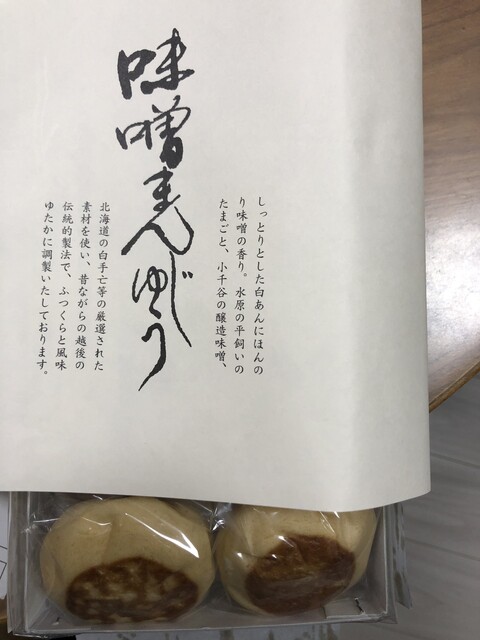 味噌まんじゅう
しっとりとした白あんにほんの
り味噌の香り。水原の平飼いの
たまごと、小千谷の醸造味噌、
北海道の白手亡等の厳選された
素材を使い、昔ながらの越後の
伝統的製法で、ふっくらと風味
ゆたかに調製いたしております。